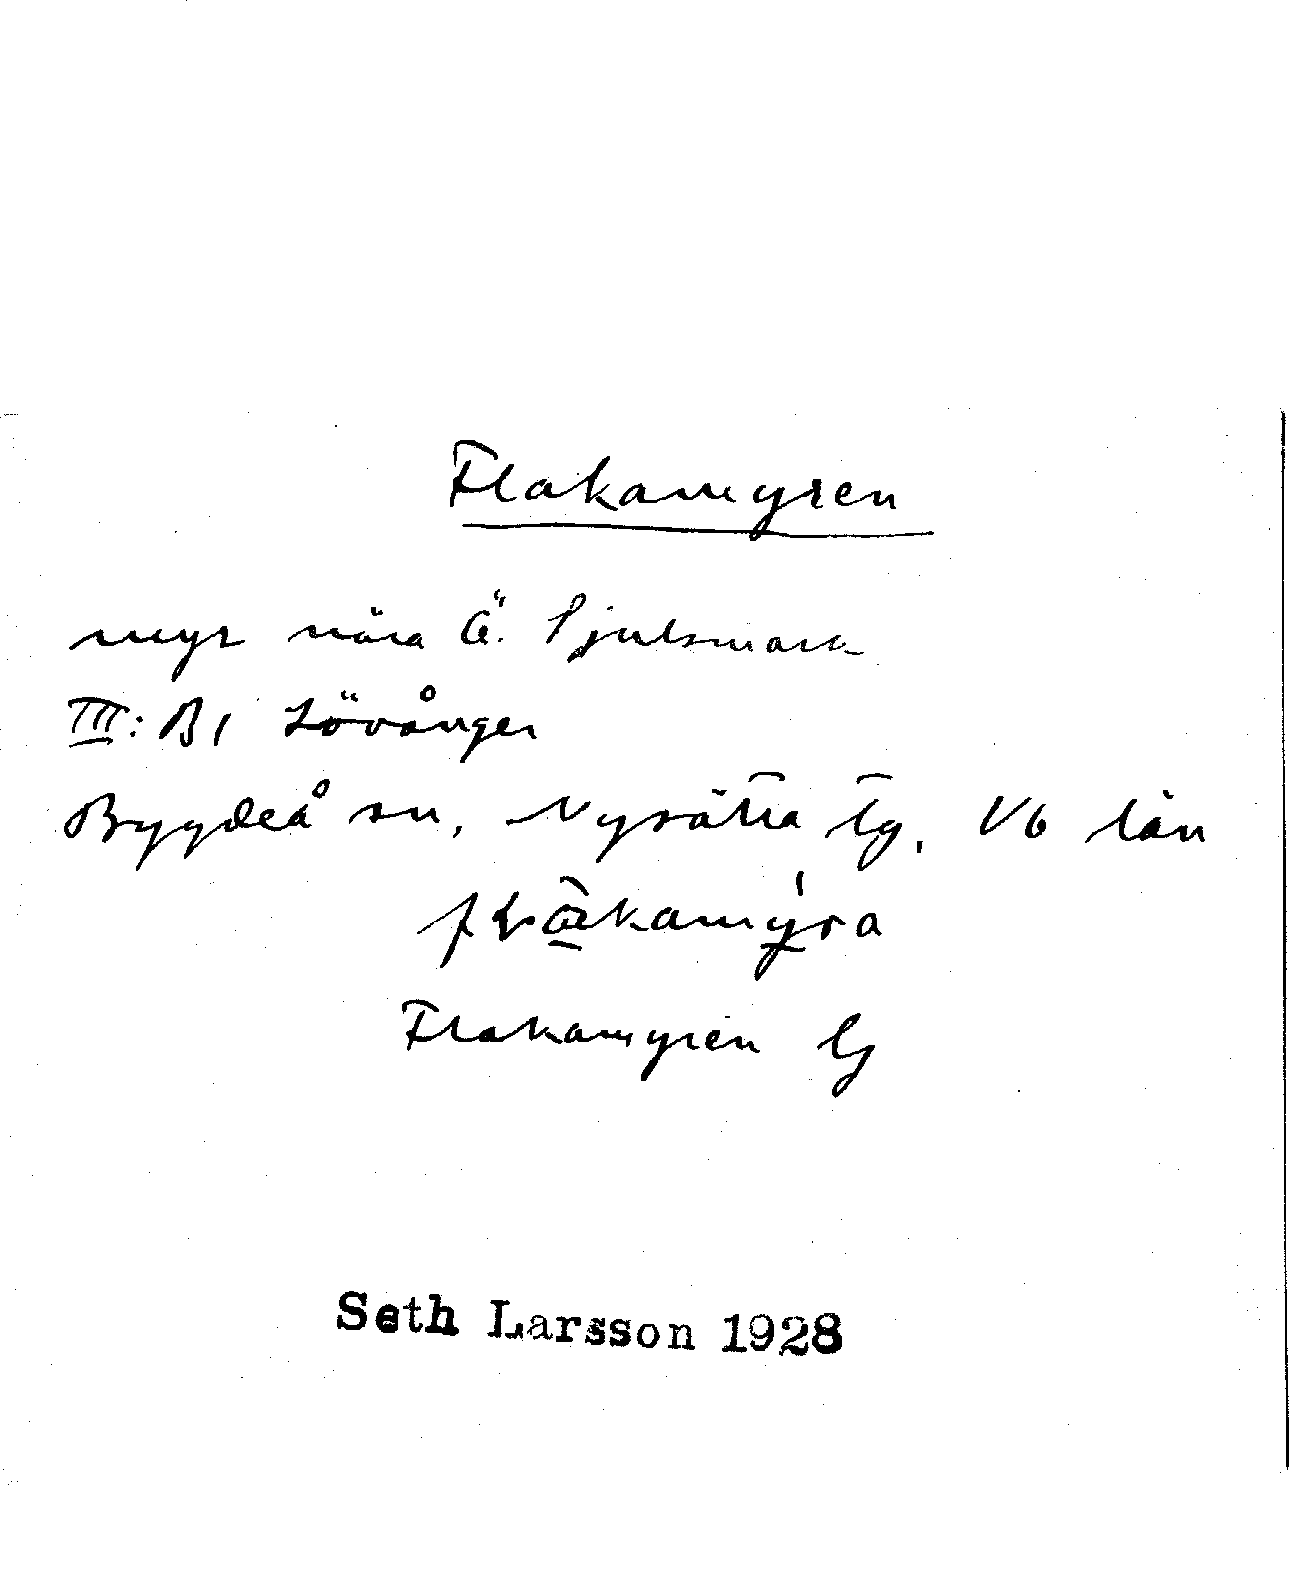 Flakamyren
myr nära Ö. Sjulsmark
III: B1 Lövånger
Bygdeå sn, Nysätra tg, Vb län
flākamýra
Flakamyren Eg
Seth Larsson 1928